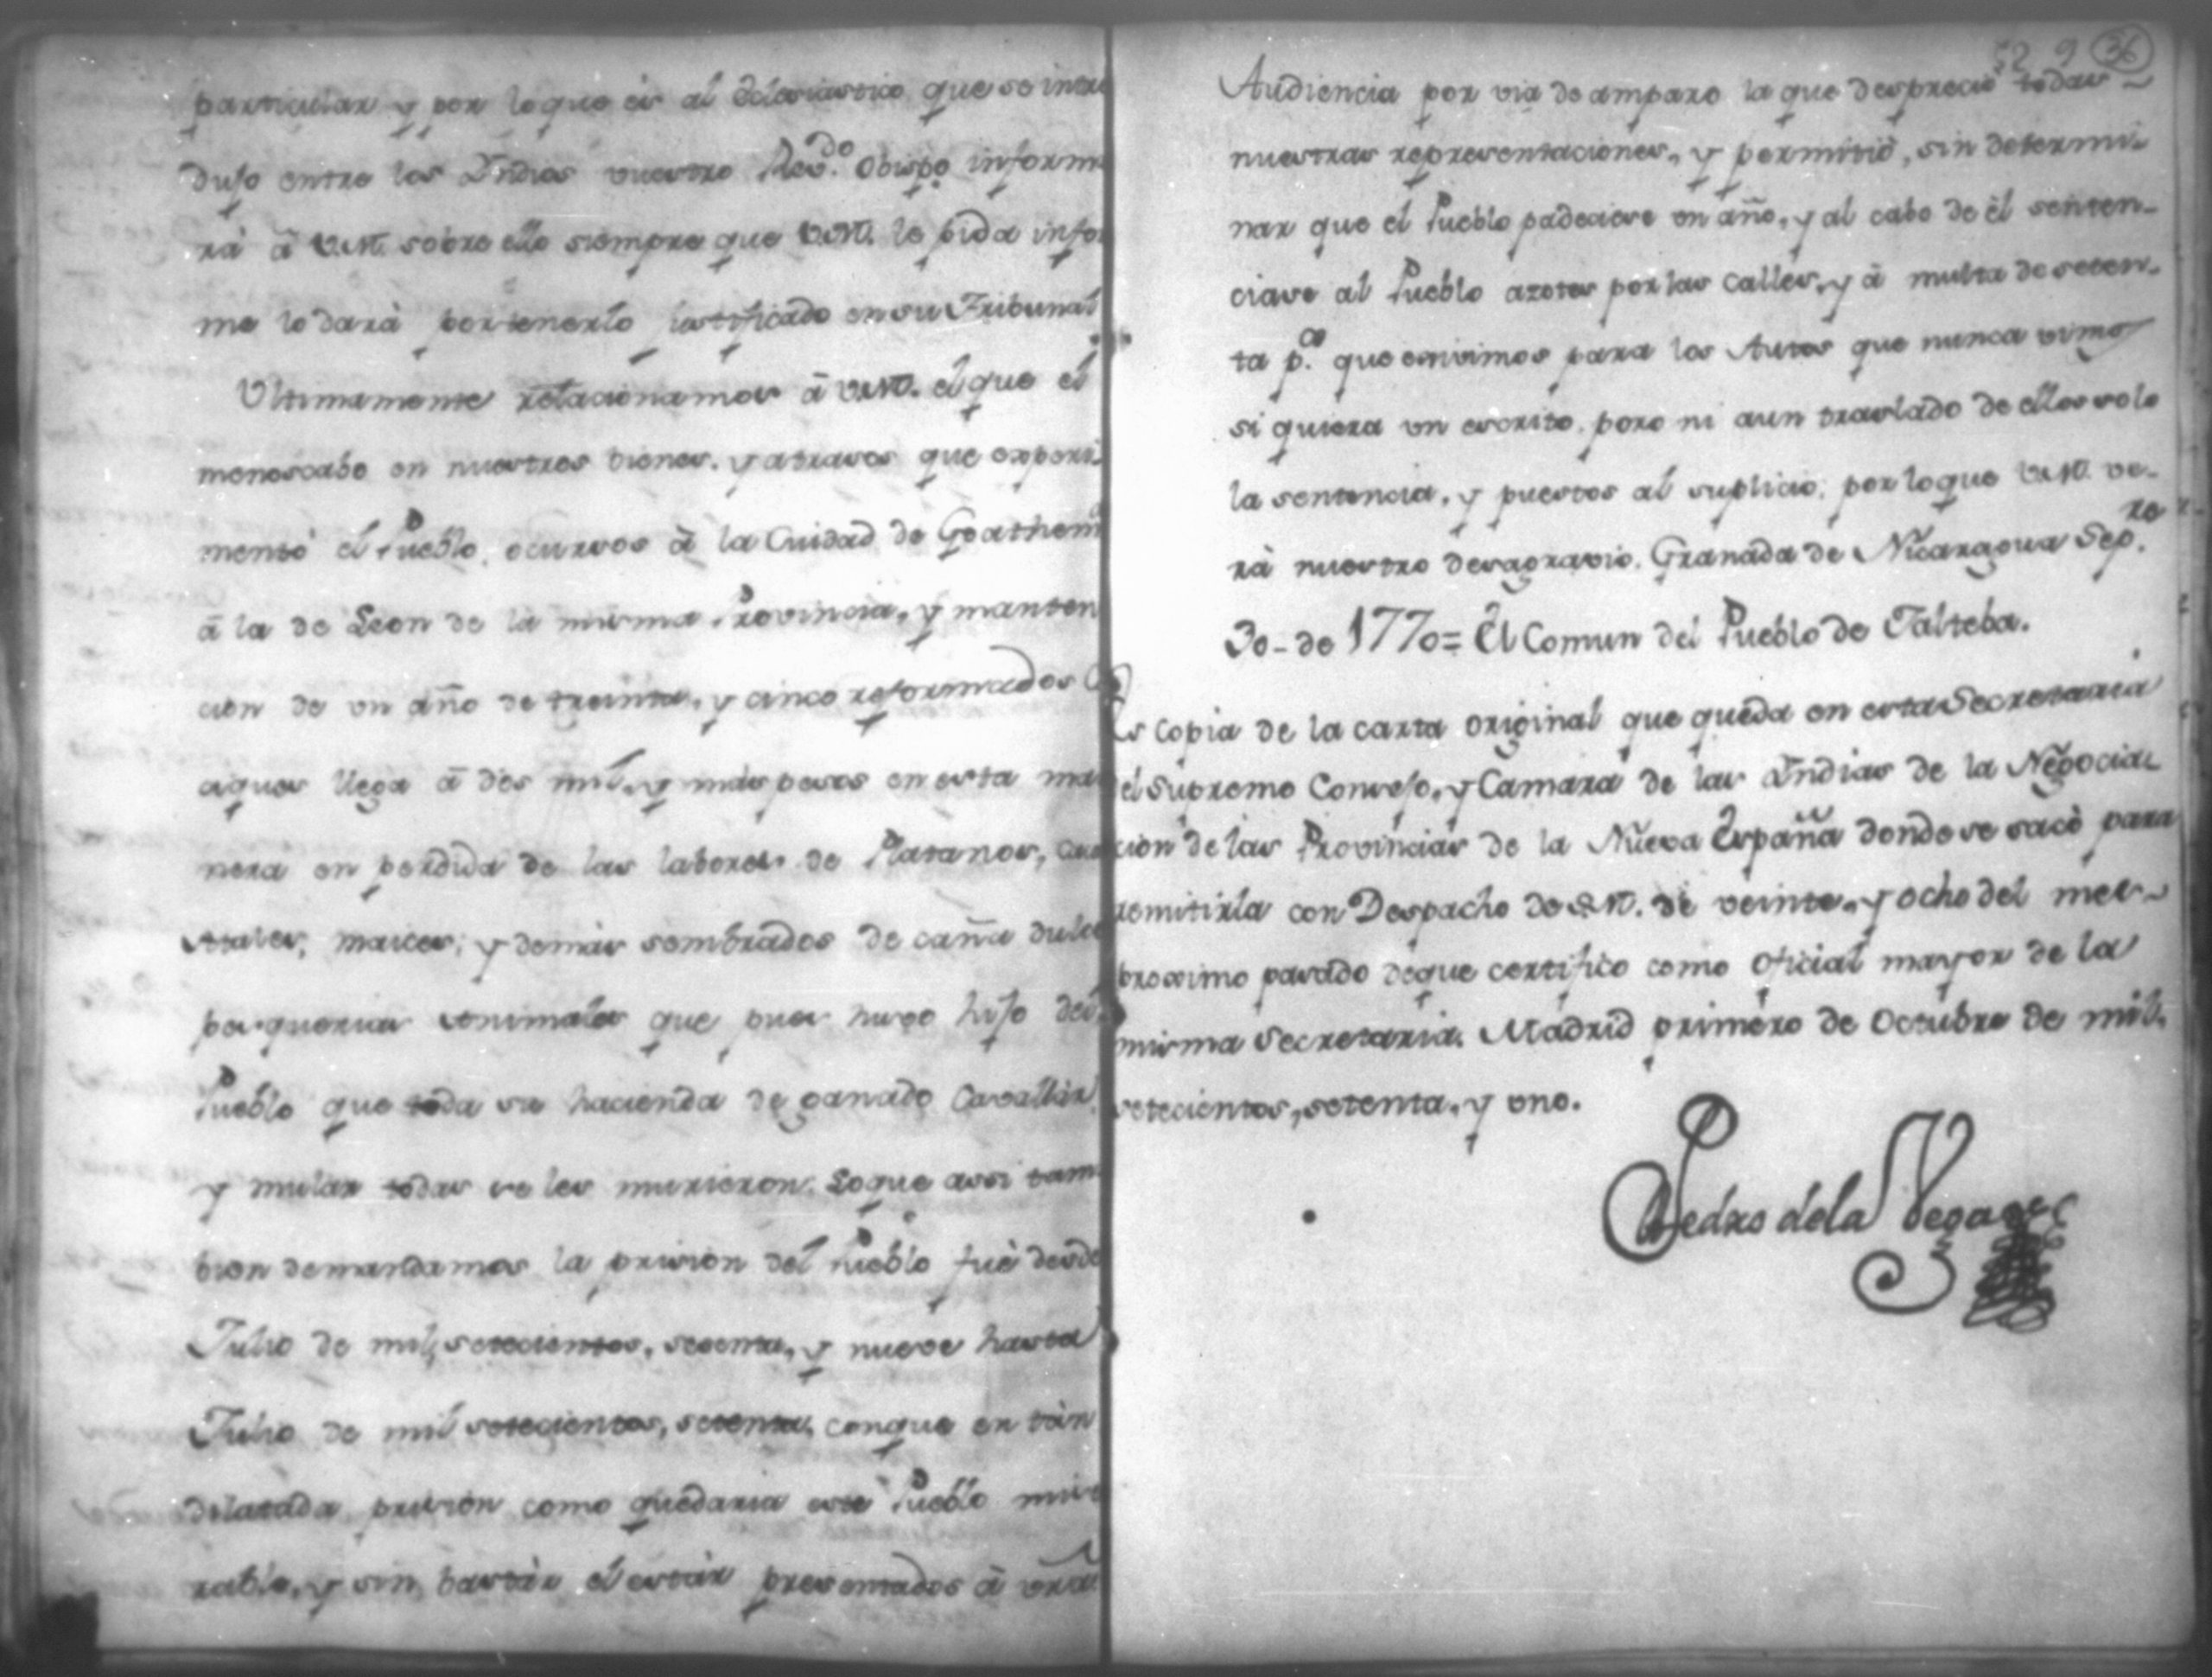 particular y por loque es al Eclesiastico que se intro
dujo entre los Indios vuestro Rev.do Obispo informa
rà à V.M. sobre ello siempre que V.M. le pida infor
me lo darà por tenerlo justificado en su Tribunal
Ultimamente relacionamos à V.M. el que el
menoscabo en nuestros bienes, y atrasos que experi
mentò el Pueblo, ocursos à la Cuidad de Goathem
à la de Leon de la misma Provincia, y manten
cion de un año de treinta, y cinco reformados
aques llega à dos mil, y mas pesos en esta ma
nera en perdida de las labores de Platanos,
maices, y demàs sembrados de caña dulce
pesquerias animales que pues huvo hijo del
Pueblo que toda su hacienda de ganado Cavallàr
y mular todas se les murieron. Loque assi tam
bien demandamos la prision del Pueblo fuè desde
Julio de mil, setecientos, sesenta, y nueve hasta
Julio de mil setecientos, setenta, conque en tàn
dilatada prision como quedaria este Pueblo mise
rable, y sin bastàr el estàr presentados à vr̃a
52 9 36
Audiencia por via de amparo la que despreciò todas
nuestras representaciones, y permitiò, sin determi-
nar que el Pueblo padeciese un año, y al cabo de èl senten-
ciase al Pueblo azotes por las calles, y à multa de seten-
ta p.os que exivimos para los Autos que nunca vimos
si quiera un escrito, pero ni aun traslado de ellos solo
la sentencia, y puestos al suplicio; por loque V.M. ve-
rà nuestro desagravio. Granada de Nicaragua Sep.re
30- de 1770= El Comun del Pueblo de Jalteba.
Es copia de la carta original que queda en esta Secretaria
del Supremo Consejo, y Camara de las Indias de la Negocia-
cion de las Provincias de la Nueva España donde se sacò para
remitirla con Despacho de S.M. de veinte, y ocho del mes
proximo pasado deque certifico como oficial mayor de la
misma Secretaria. Madrid primero de Octubre de mil,
setecientos, setenta, y uno.
Pedro dela Vega